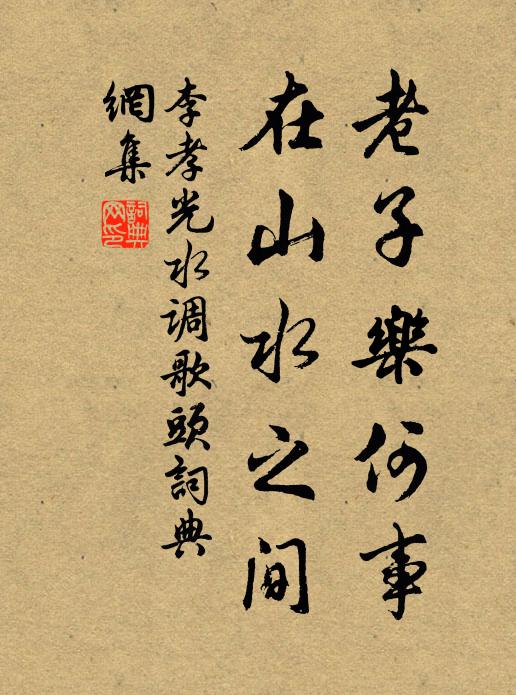 老子樂何事
在山水之间
李孝光水调歌頭詞典
網集
詞典网印